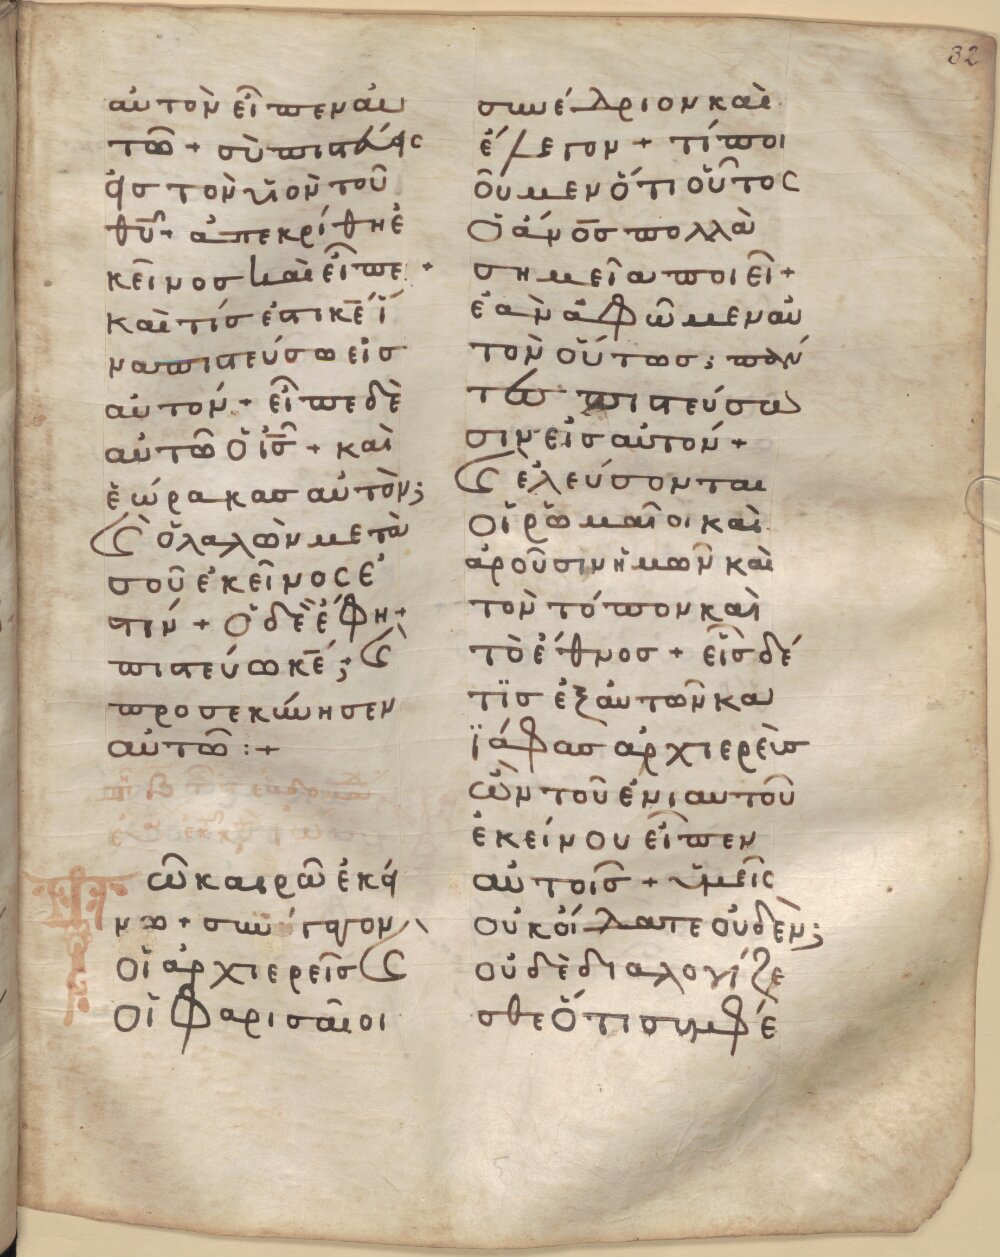 32
αὐτὸν εἶπεν αὐ
τῶ + σὺ πιστεύεις
εἰς τὸν υἱὸν τοῦ
θῦ + ἀπεκρίθη ἐ
κεῖνος καὶ εἶπε +
καὶ τίς ἐστι κε ἵ
να πιστεύσω εἰς
αὐτόν + εἶπε δὲ
αὐτῶ ὁ ις + καὶ
ἑώρακας αὐτὸν;
καὶ ὁ λαλῶν μετὰ
σοῦ ἐκεῖνος ἐ
στίν + ὁ δὲ ἔφη +
πιστεύω κε; καὶ
προσεκύνησεν
αὐτῶ : +
ῶ καιρῶ ἐκεί
νω + συνήγαγον
οἱ ἀρχιερεῖς καὶ
οἱ Φαρισαῖοι
συνέδριον καὶ
ἔλεγον + τί ποι
οῦμεν ὅτι οὗτος
ὁ ἀνος πολλὰ
σημεῖα ποιεῖ +
ἐὰν ἀφῶμεν αὐ
τὸν οὕτως; πάν
τες πιστεύσω
σιν εἰς αὐτόν +
καὶ ἐλεύσονται
οἱ ρωμαῖοι καὶ
ἀροῦσιν ἡμῶν καὶ
τὸν τόπον καὶ
τὸ ἔθνος + εἷς δέ
τις ἐξ αὐτῶν κα
ϊάφας ἀρχιερεὺς
ὢν τοῦ ἐνιαυτοῦ
ἐκείνου εἶπεν
αὐτοῖς + ὑμεῖς
οὐκ οἴδατε οὐδὲν;
οὐδὲ διαλογίζε
σθε ὅτι συμφέ